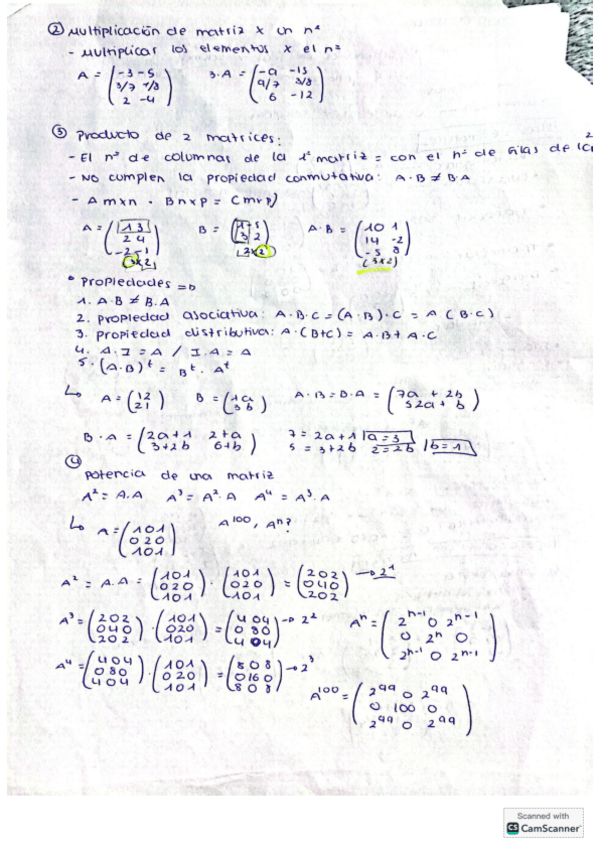 ② Multiplicación de matriz x un nº
- Multiplicar los elementos x el nº
A = (-3 -5 / 3/7 1/8 / 2 -4) 3·A = (-9 -15 / 9/7 3/8 / 6 -12)
③ Producto de 2 matrices:
- El nº de columnas de la 1ª matriz = con el nº de filas de la 2
- No cumplen la propiedad conmutativa: A·B ≠ B·A
- Amxn · Bnxp = Cmxp)
A = (1 3 / 2 4 / -2 -1) B = (1 -5 / 3 2) A·B = (10 1 / 14 -2 / -5 8)
(3x2) (2x2) (3x2)
• Propiedades =>
1. A·B ≠ B·A
2. Propiedad asociativa: A·B·C = (A·B)·C = A (B·C)
3. Propiedad distributiva: A·(B+C) = A·B + A·C
4. A·I = A / I·A = A
5. (A·B)ᵗ = Bᵗ · Aᵗ
↳ A = (1 2 / 2 1) B = (1 a / 3 b) A·B = B·A = (7 a + 2b / 5 2a + b)
B·A = (2a+1 2+a / 3+2b 6+b) 7 = 2a+1 | a = 3
5 = 3+2b 2 = 2b | b = 1
④
Potencia de una matriz
A² = A·A A³ = A²·A A⁴ = A³·A
↳ A = (1 0 1 / 0 2 0 / 1 0 1) A¹⁰⁰, Aⁿ?
A² = A·A = (1 0 1 / 0 2 0 / 1 0 1) · (1 0 1 / 0 2 0 / 1 0 1) = (2 0 2 / 0 4 0 / 2 0 2) → 2¹
A³ = (2 0 2 / 0 4 0 / 2 0 2) · (1 0 1 / 0 2 0 / 1 0 1) = (4 0 4 / 0 8 0 / 4 0 4) → 2² Aⁿ = (2ⁿ⁻¹ 0 2ⁿ⁻¹ / 0 2ⁿ 0 / 2ⁿ⁻¹ 0 2ⁿ⁻¹)
A⁴ = (4 0 4 / 0 8 0 / 4 0 4) · (1 0 1 / 0 2 0 / 1 0 1) = (8 0 8 / 0 16 0 / 8 0 8) → 2³
A¹⁰⁰ = (2⁹⁹ 0 2⁹⁹ / 0 100 0 / 2⁹⁹ 0 2⁹⁹)
Scanned with
CS CamScanner